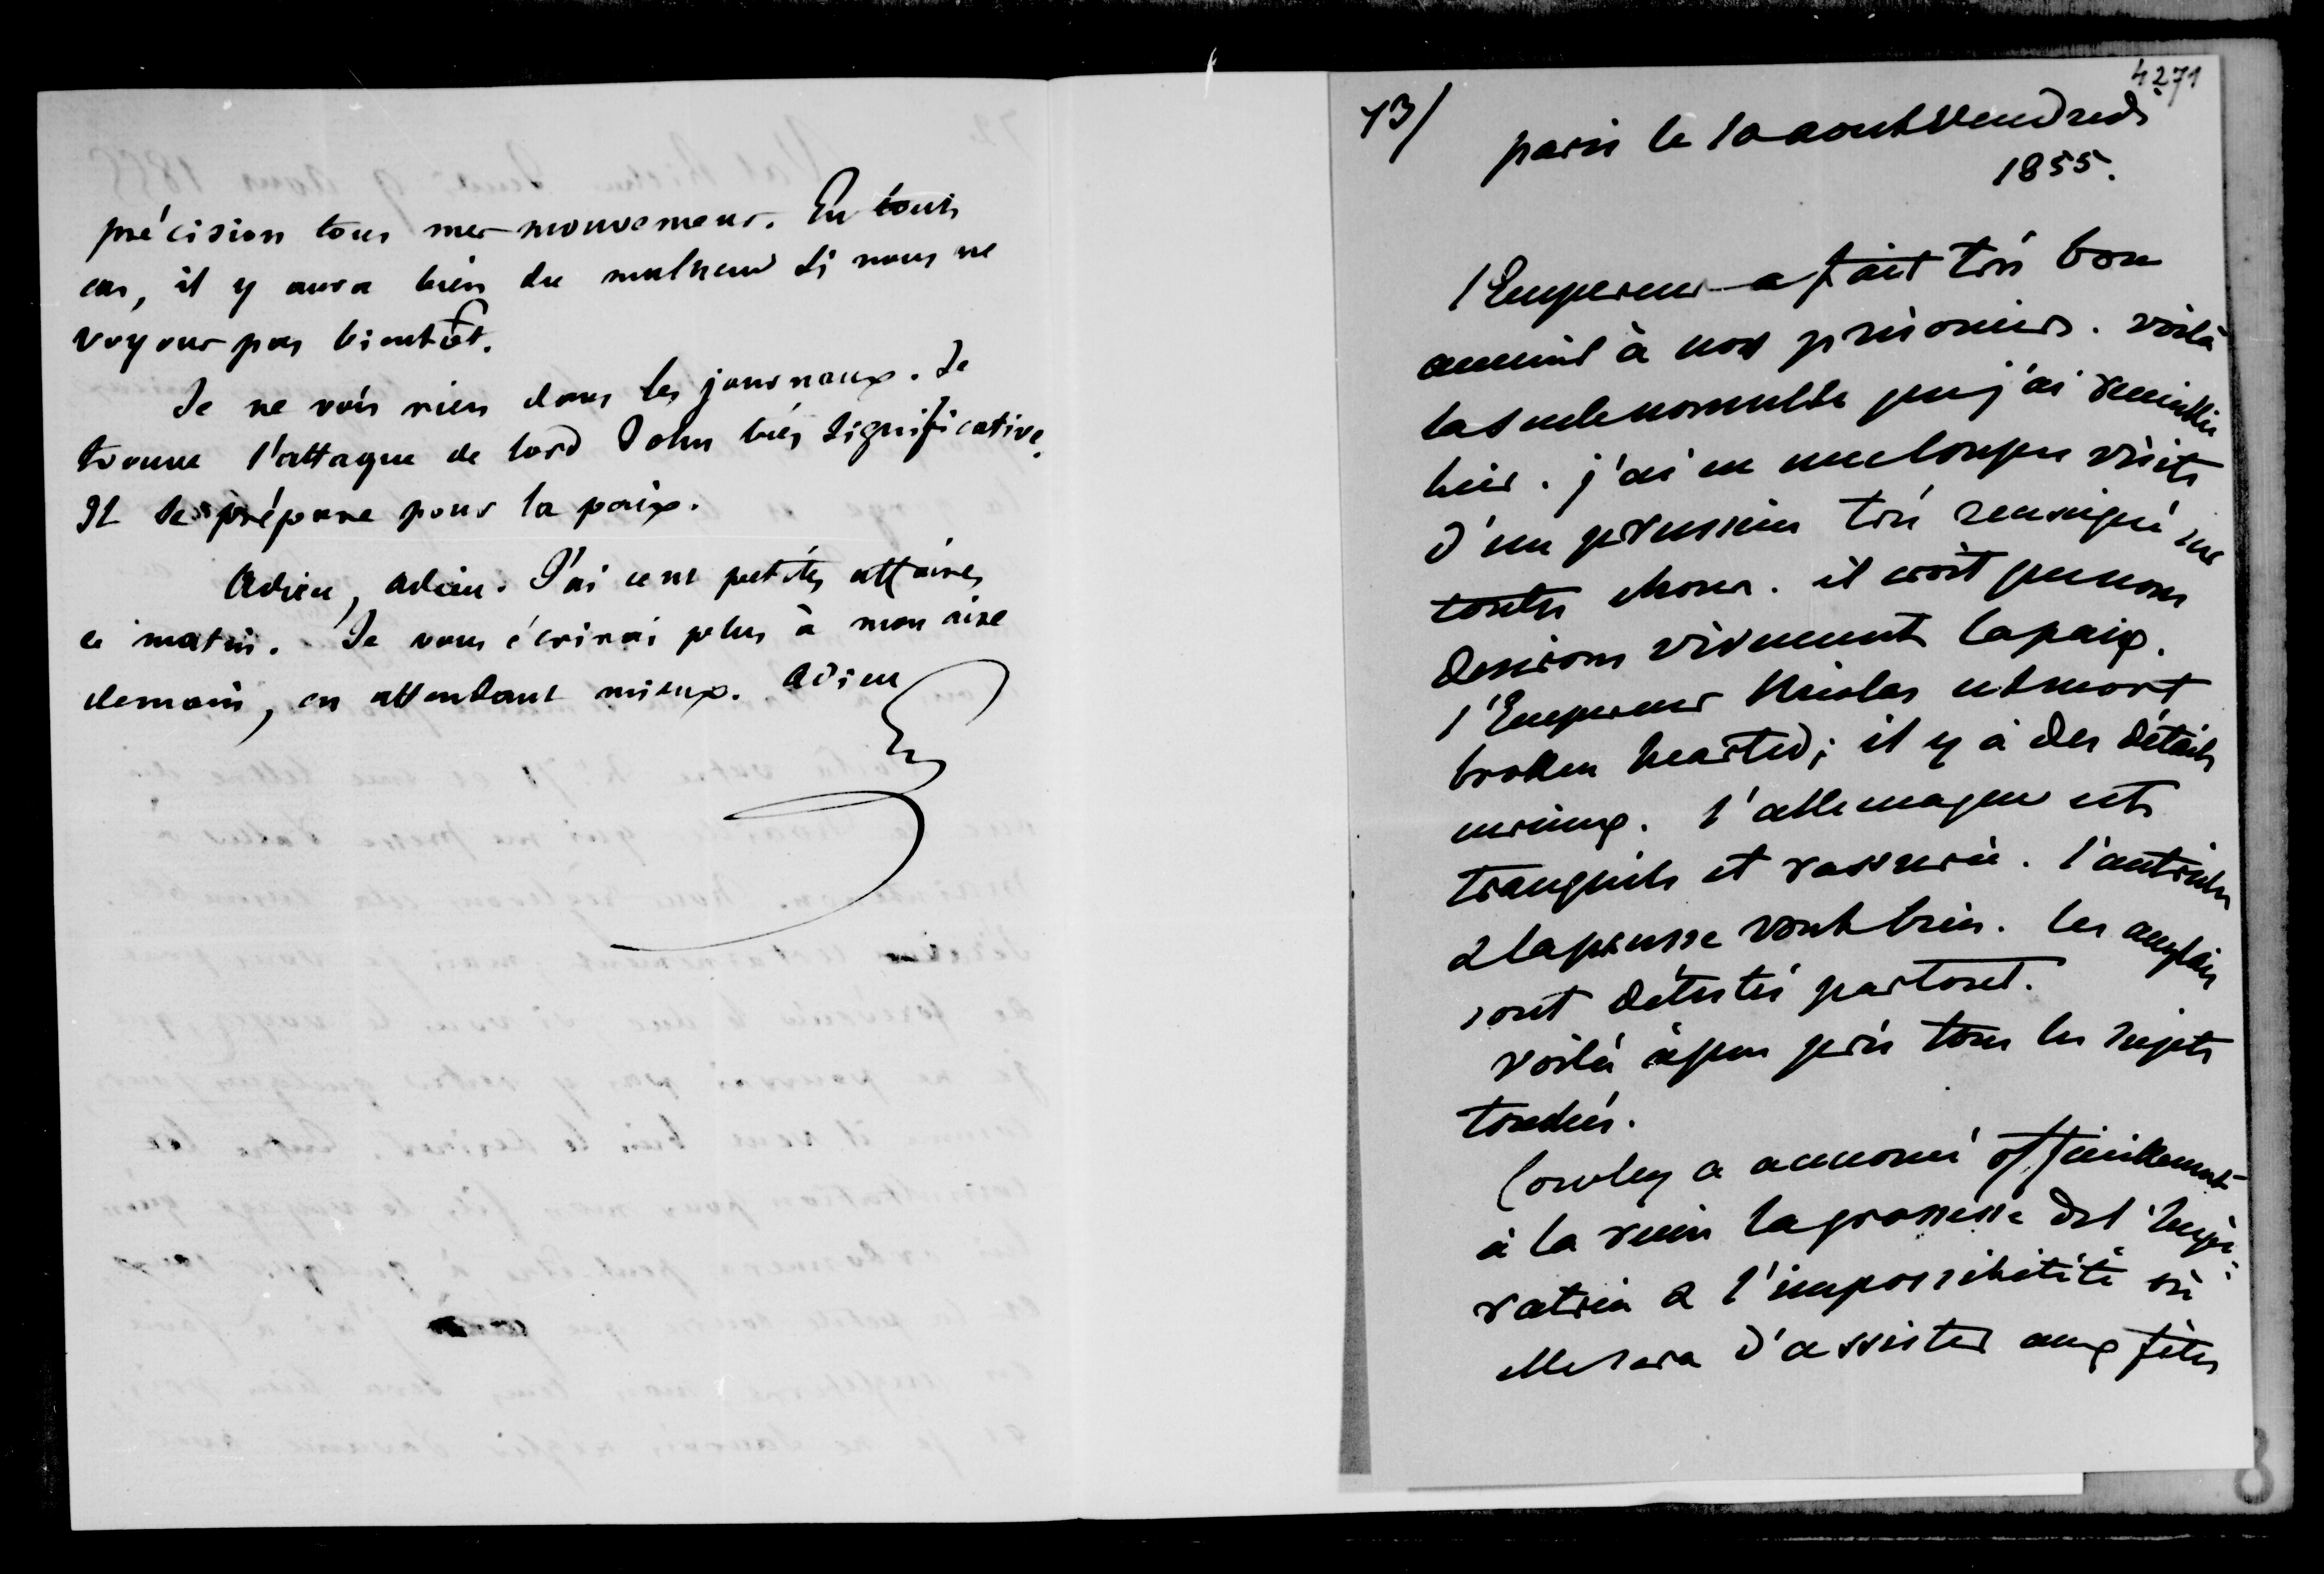 précision tous mes mouvemens. En tous
cas, il y aura bien du malheur si nous ne
voyons pas bientôt.
Je ne vois rien dans les journaux. Je
trouve l'attaque de lord John bien significative.
Il se prépare pour la paix.
Adieu, adieu. J'ai cent petites affaires
ce matin. Je vous écrirai plus à mon aise
demain, en attendant mieux. Adieu
4271
73/
paris le 10 aout Vendredi
1855.
l'Empereur a fait très bon
accueil à nos prisoniers. voilà
la seule nouvelle que j'ai recueillie
hier. j'ai eu une longue visite
d'un prussien très renseigné sur
toutes choses. il croit que nous
desirons vivement la paix.
l'Empereur Nicolas est mort
broken hearted; il y a des détails
curieux. l'allemagne est
tranquile et rassurée. l'autriche
& la prusse vont bien. les anglais
sont détestés partout.
voilà àpeu près tous les sujets
touchés.
Cowley a annoncé officiellement
à la reine la grossesse de l'Impé-
ratrice & l'impossibilité où
elle sera d'assister aux fêtes
8